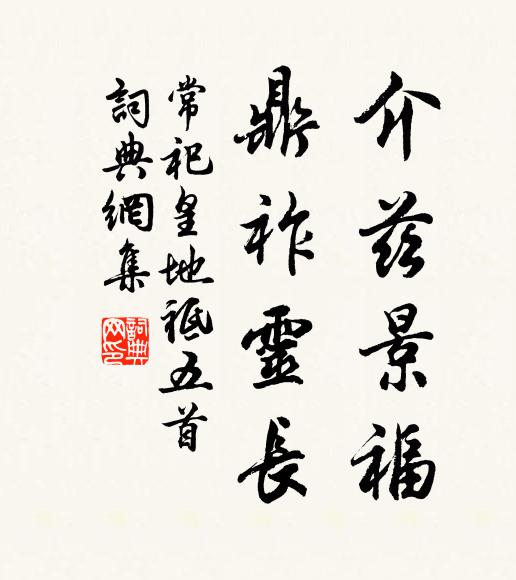 介茲景福
鼎祚靈長
常祀皇地祇五首
詞典網集
詞典
网印